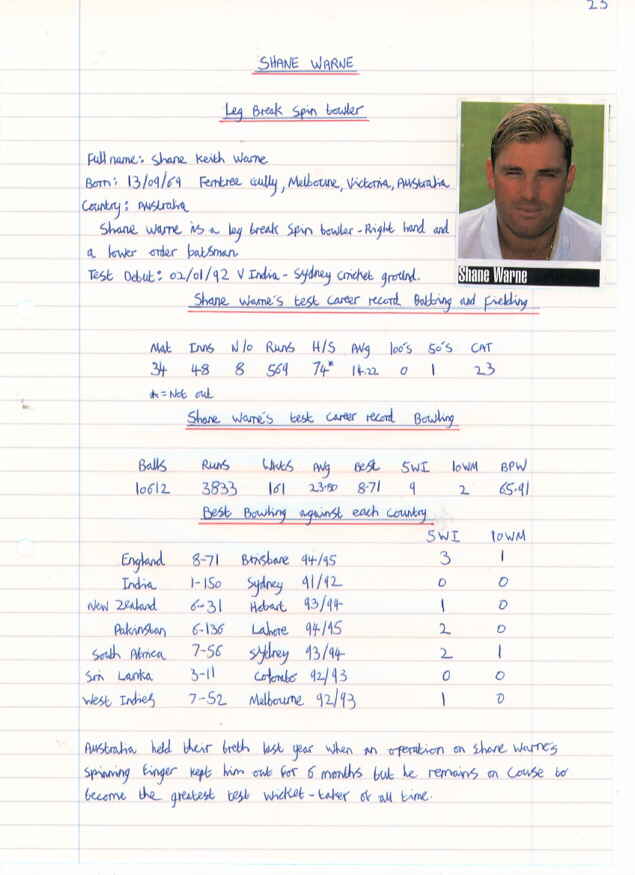 23
SHANE WARNE
Leg Break Spin bowler
Full name: Shane Keith Warne
Born: 13/09/69 Ferntree Gully, Melbourne, Victoria, Australia
Country: Australia
Shane Warne is a leg break spin bowler - Right hand and
a lower order batsman
Test Debut: 02/01/92 V India - Sydney cricket ground.
Shane Warne
Shane Warne's test career record Batting and Fielding
Mat Inns N/O Runs H/S Avg 100's 50's CAT
34 48 8 569 74* 14.22 0 1 23
* = Not out
Shane Warne's test career record Bowling
Balls Runs Wkts Avg Best 5WI 10WM BPW
10612 3833 161 23.80 8-71 9 2 65.91
Best Bowling against each country
5WI 10WM
England 8-71 Brisbane 94/95 3 1
India 1-150 Sydney 91/92 0 0
New Zealand 6-31 Hobart 93/94 1 0
Pakinstan 6-136 Lahore 94/95 2 0
South Africa 7-56 Sydney 93/94 2 1
Sri Lanka 3-11 Colombo 92/93 0 0
West Indies 7-52 Melbourne 92/93 1 0
Australia held their breth last year when an operation on Shane Warne's
spinning finger kept him out for 6 months but he remains on couse to
become the greatest test wicket-taker of all time.